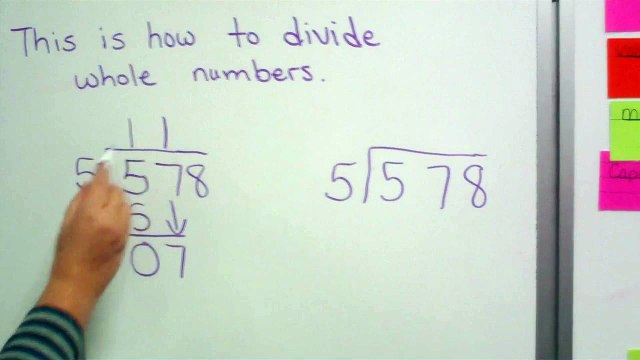 This is how to divide
whole numbers.
11
5 578 5 578
5
07